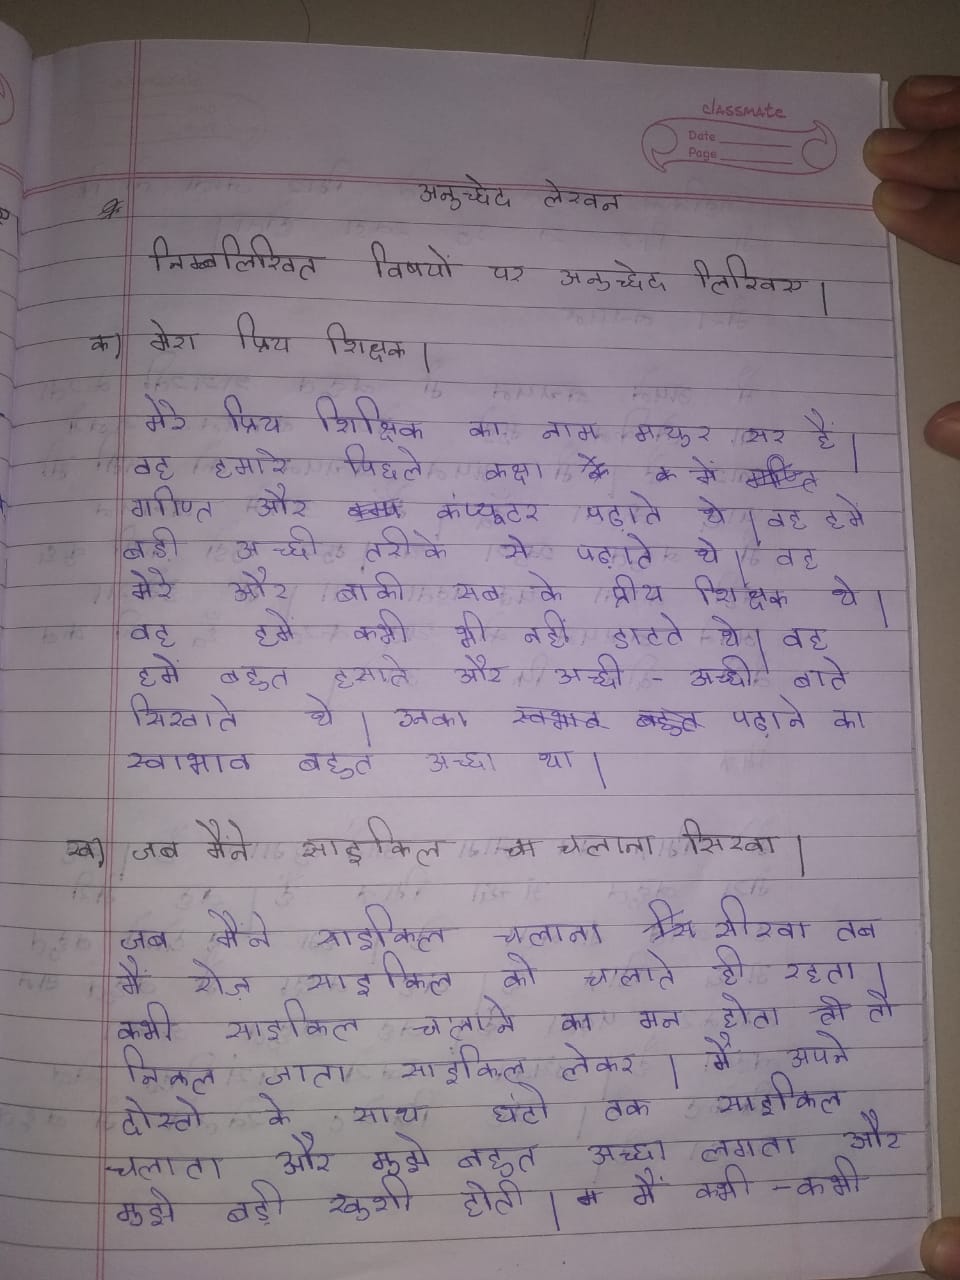 classmate
Date
Page
अनुच्छेद लेखन
निम्नलिखित विषयों पर अनुच्छेद लिखिए |
क) मेरा प्रिय शिक्षक |
मेरे प्रिय शिक्षिक का नाम मयुर सर हैं |
वह हमारे पिछले कक्षा में
गणित और कंप्यूटर पढ़ाते थे | वह हमें
बड़ी अच्छी तरीके से पढ़ाते थे | वह
मेरे और बाकी सब के प्रीय शिक्षक थे |
वह हमें कभी भी नहीं डाटते थे | वह
हमें बहुत हसाते और अच्छी - अच्छी बाते
सिखाते थे | उनका स्वभाव बहुत पढ़ाने का
स्वाभाव बहुत अच्छा था |
ख) जब मैंने साइकिल चलाना सिखा |
जब मैंने साइकिल चलाना सीखा तब
मैं रोज़ साइकिल को चलाते ही रहता |
कभी साइकिल चलाने का मन होता तो
निकल जाता साइकिल लेकर | मैं अपने
दोस्तो के साथ घंटो तक साइकिल
चलाता और मुझे बहुत अच्छा लगता और
मुझे बड़ी खुशी होती | मैं कभी - कभी